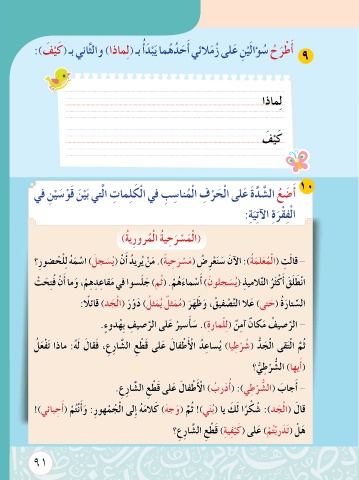 ٩ أَطْرَحُ سُؤالَيْنِ عَلى زُمَلائي أَحَدُهُما يَبْدَأُ بـِ (لِماذا) والثّاني بـِ (كَيْفَ):
لِماذا
كَيْفَ
١٠ أَضَعُ الشَّدَّةَ عَلى الْحَرْفِ الْمُناسِبِ في الْكَلِماتِ الَّتي بَيْنَ قَوْسَيْنِ في
الْفِقْرَةِ الْآتِيَةِ:
(الْمَسْرَحِيةُ الْمُرورِيةُ)
– قالَتِ (الْمُعَلمَةُ): الآنَ سَنَعْرِضُ (مَسْرَحِيةً). مَنْ يُريدُ أَنْ (يُسجلَ) اسْمَهُ لِلْحُضورِ؟
انْطَلَقَ أَكْثَرُ التَّلاميذِ (يُسجلونَ) أَسْماءَهُمْ. (ثُم) جَلَسوا في مَقاعِدِهِمْ، وَما أَنْ فُتِحَتْ
السِّتارَةُ (حَتى) عَلا التَّصْفيقُ، وَظَهَرَ (مُمَثلٌ يُمَثلُ) دَوْرَ (الْجَد) قائلًا:
– الرَّصيفُ مَكانٌ آمِنٌ (لِلْمارةِ). سَأَسيرُ عَلى الرَّصيفِ بِهُدوءٍ.
ثُمَّ الْتَقى الْجَدُّ (شُرْطِيا) يُساعِدُ الْأَطْفالَ عَلى قَطْعِ الشّارِعِ، فَقالَ لَهُ: ماذا تَفْعَلُ
(أَيها) الشُّرْطِيُّ؟
– أَجابَ (الشُّرْطِي): (أُدَربُ) الْأَطْفالَ عَلى قَطْعِ الشّارِعِ.
قالَ (الْجَد): شُكْرًا لَكَ يا (بُنَي)! ثُمَّ (وَجهَ) كَلامَهُ إِلى الْجُمْهورِ: وَأَنْتُمْ (أَحِبائي)!
هَلْ (تَدَربْتُمْ) عَلى (كَيْفِيةِ) قَطْعِ الشّارِعِ؟
٩١